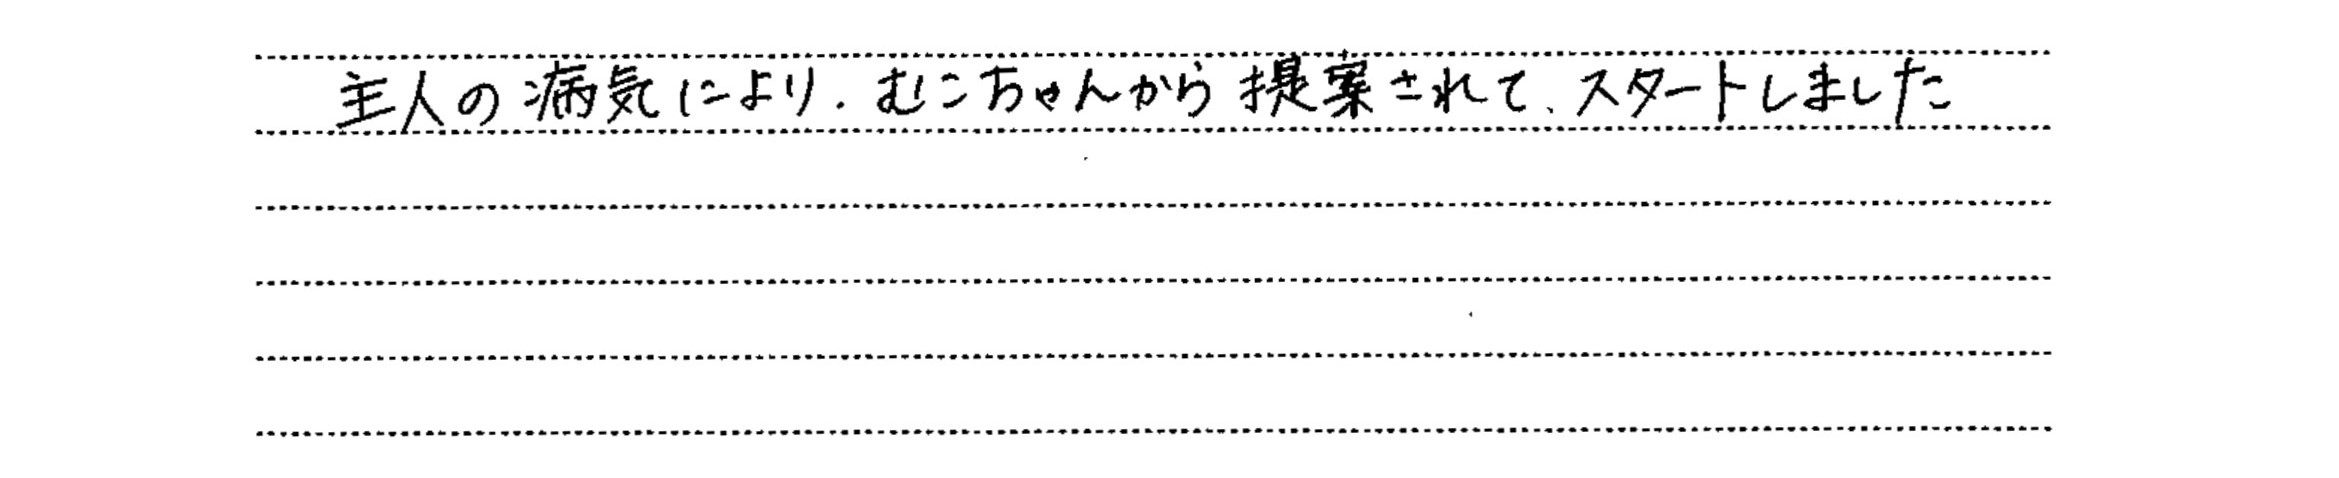 主人の病気により、むこちゃんから提案されて、スタートしました